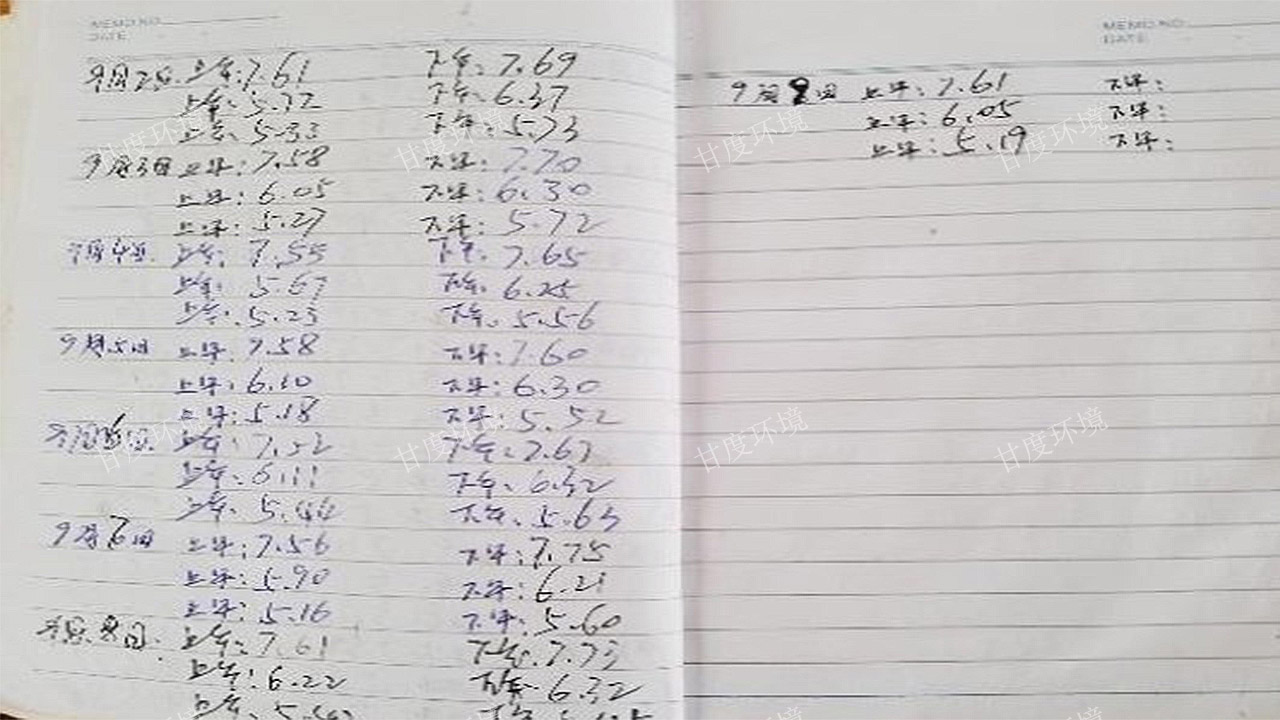 MEMO NO.
DATE
9月2日 上午:7.61 下午:7.69
上午:5.72 下午:6.37
上午:5.33 下午:5.73
9月3日 上午:7.58 下午:7.70
上午:6.05 下午:6.30
上午:5.27 下午:5.72
9月4日 上午:7.55 下午:7.65
上午:5.67 下午:6.25
上午:5.23 下午:5.56
9月5日 上午:7.58 下午:7.60
上午:6.10 下午:6.30
上午:5.18 下午:5.52
9月6日 上午:7.52 下午:7.67
上午:6.11 下午:6.32
上午:5.44 下午:5.63
9月 日 上午:7.56 下午:7.75
上午:5.90 下午:6.21
上午:5.16 下午:5.60
9月8日 上午:7.61 下午:7.73
上午:6.22 下午:6.32
上午: 下午:
MEMO NO.
DATE
9月 日 上午:7.61 下午:
上午:6.05 下午:
上午:5.19 下午:
甘度环境
甘度环境
甘度环境
甘度环境
甘度环境
甘度环境
甘度环境
甘度环境